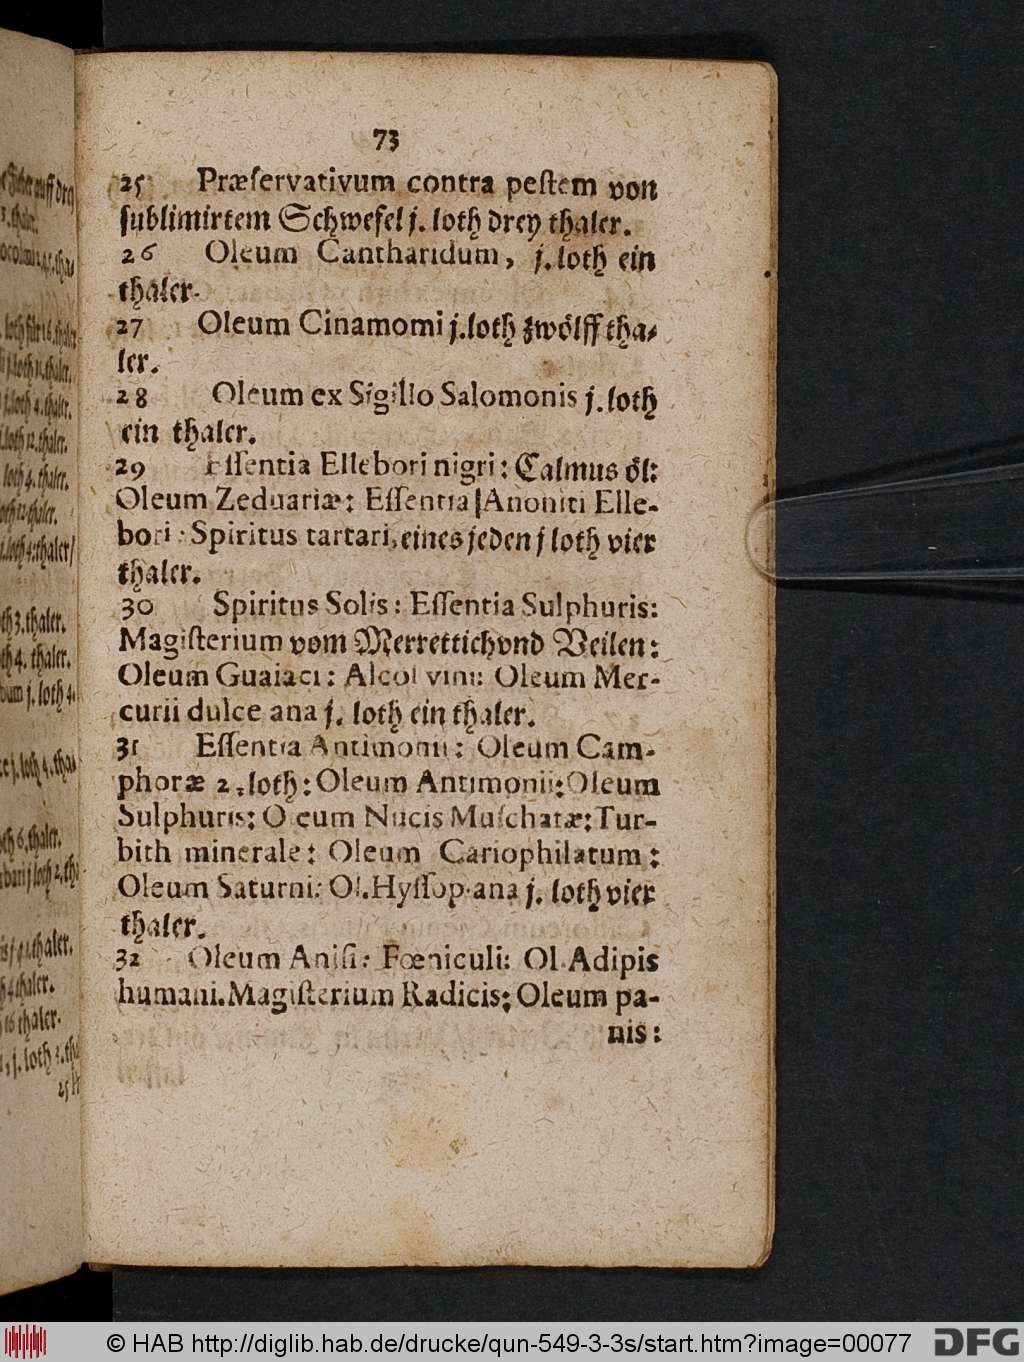 73
25 Præſervativum contra peſtem von
ſublimirtem Schwefel j. loth drey thaler.
26 Oleum Cantharidum, j. loth ein
thaler.
27 Oleum Cinamomi j. loth zwölff tha-
ler.
28 Oleum ex Sigillo Salomonis j. loth
ein thaler.
29 Eſſentia Ellebori nigri: Calmus öl:
Oleum Zeduariæ: Eſſentia Anoniti Elle-
bori: Spiritus tartari, eines jeden j loth vier
thaler.
30 Spiritus Solis: Eſſentia Sulphuris:
Magiſterium vom Merrettich vnd Veilen:
Oleum Guaiaci: Alcol vini: Oleum Mer-
curii dulce ana j. loth ein thaler.
31 Eſſentia Antimonii: Oleum Cam-
phoræ 2. loth: Oleum Antimonii: Oleum
Sulphuris: Oleum Nucis Muſchatæ: Tur-
bith minerale: Oleum Cariophilatum:
Oleum Saturni: Ol. Hyſſop. ana j. loth vier
thaler.
32 Oleum Aniſi: Fœniculi: Ol. Adipis
humani. Magiſterium Radicis: Oleum pa-
nis:
© HAB http://diglib.hab.de/drucke/qun-549-3-3s/start.htm?image=00077
DFG